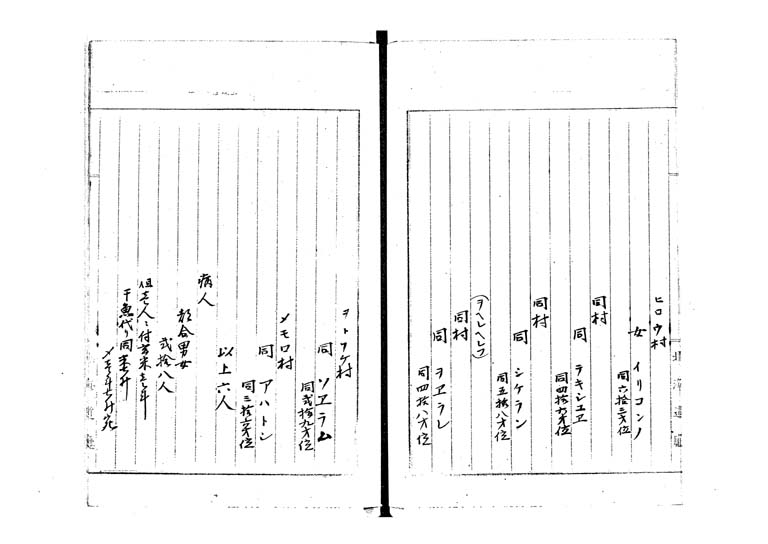 ヒロウ村
女 イリコンノ
同六拾三才位
同村
同 テキシユヱ
同四拾九才位
同村
同 シケラン
同五拾八才位
(ヲヘレヘレフ)
同村
同 ヲヱラレ
同四拾八才位
ヲトフケ村
同 ソヱラム
同弐拾九才位
メモロ村
同 アハトン
同三拾弐才位
以上六人
病人
都合男女
弐拾八人
但壱人ニ付玄米壱升
干魚代り同壱升
〆壱斗七升宛